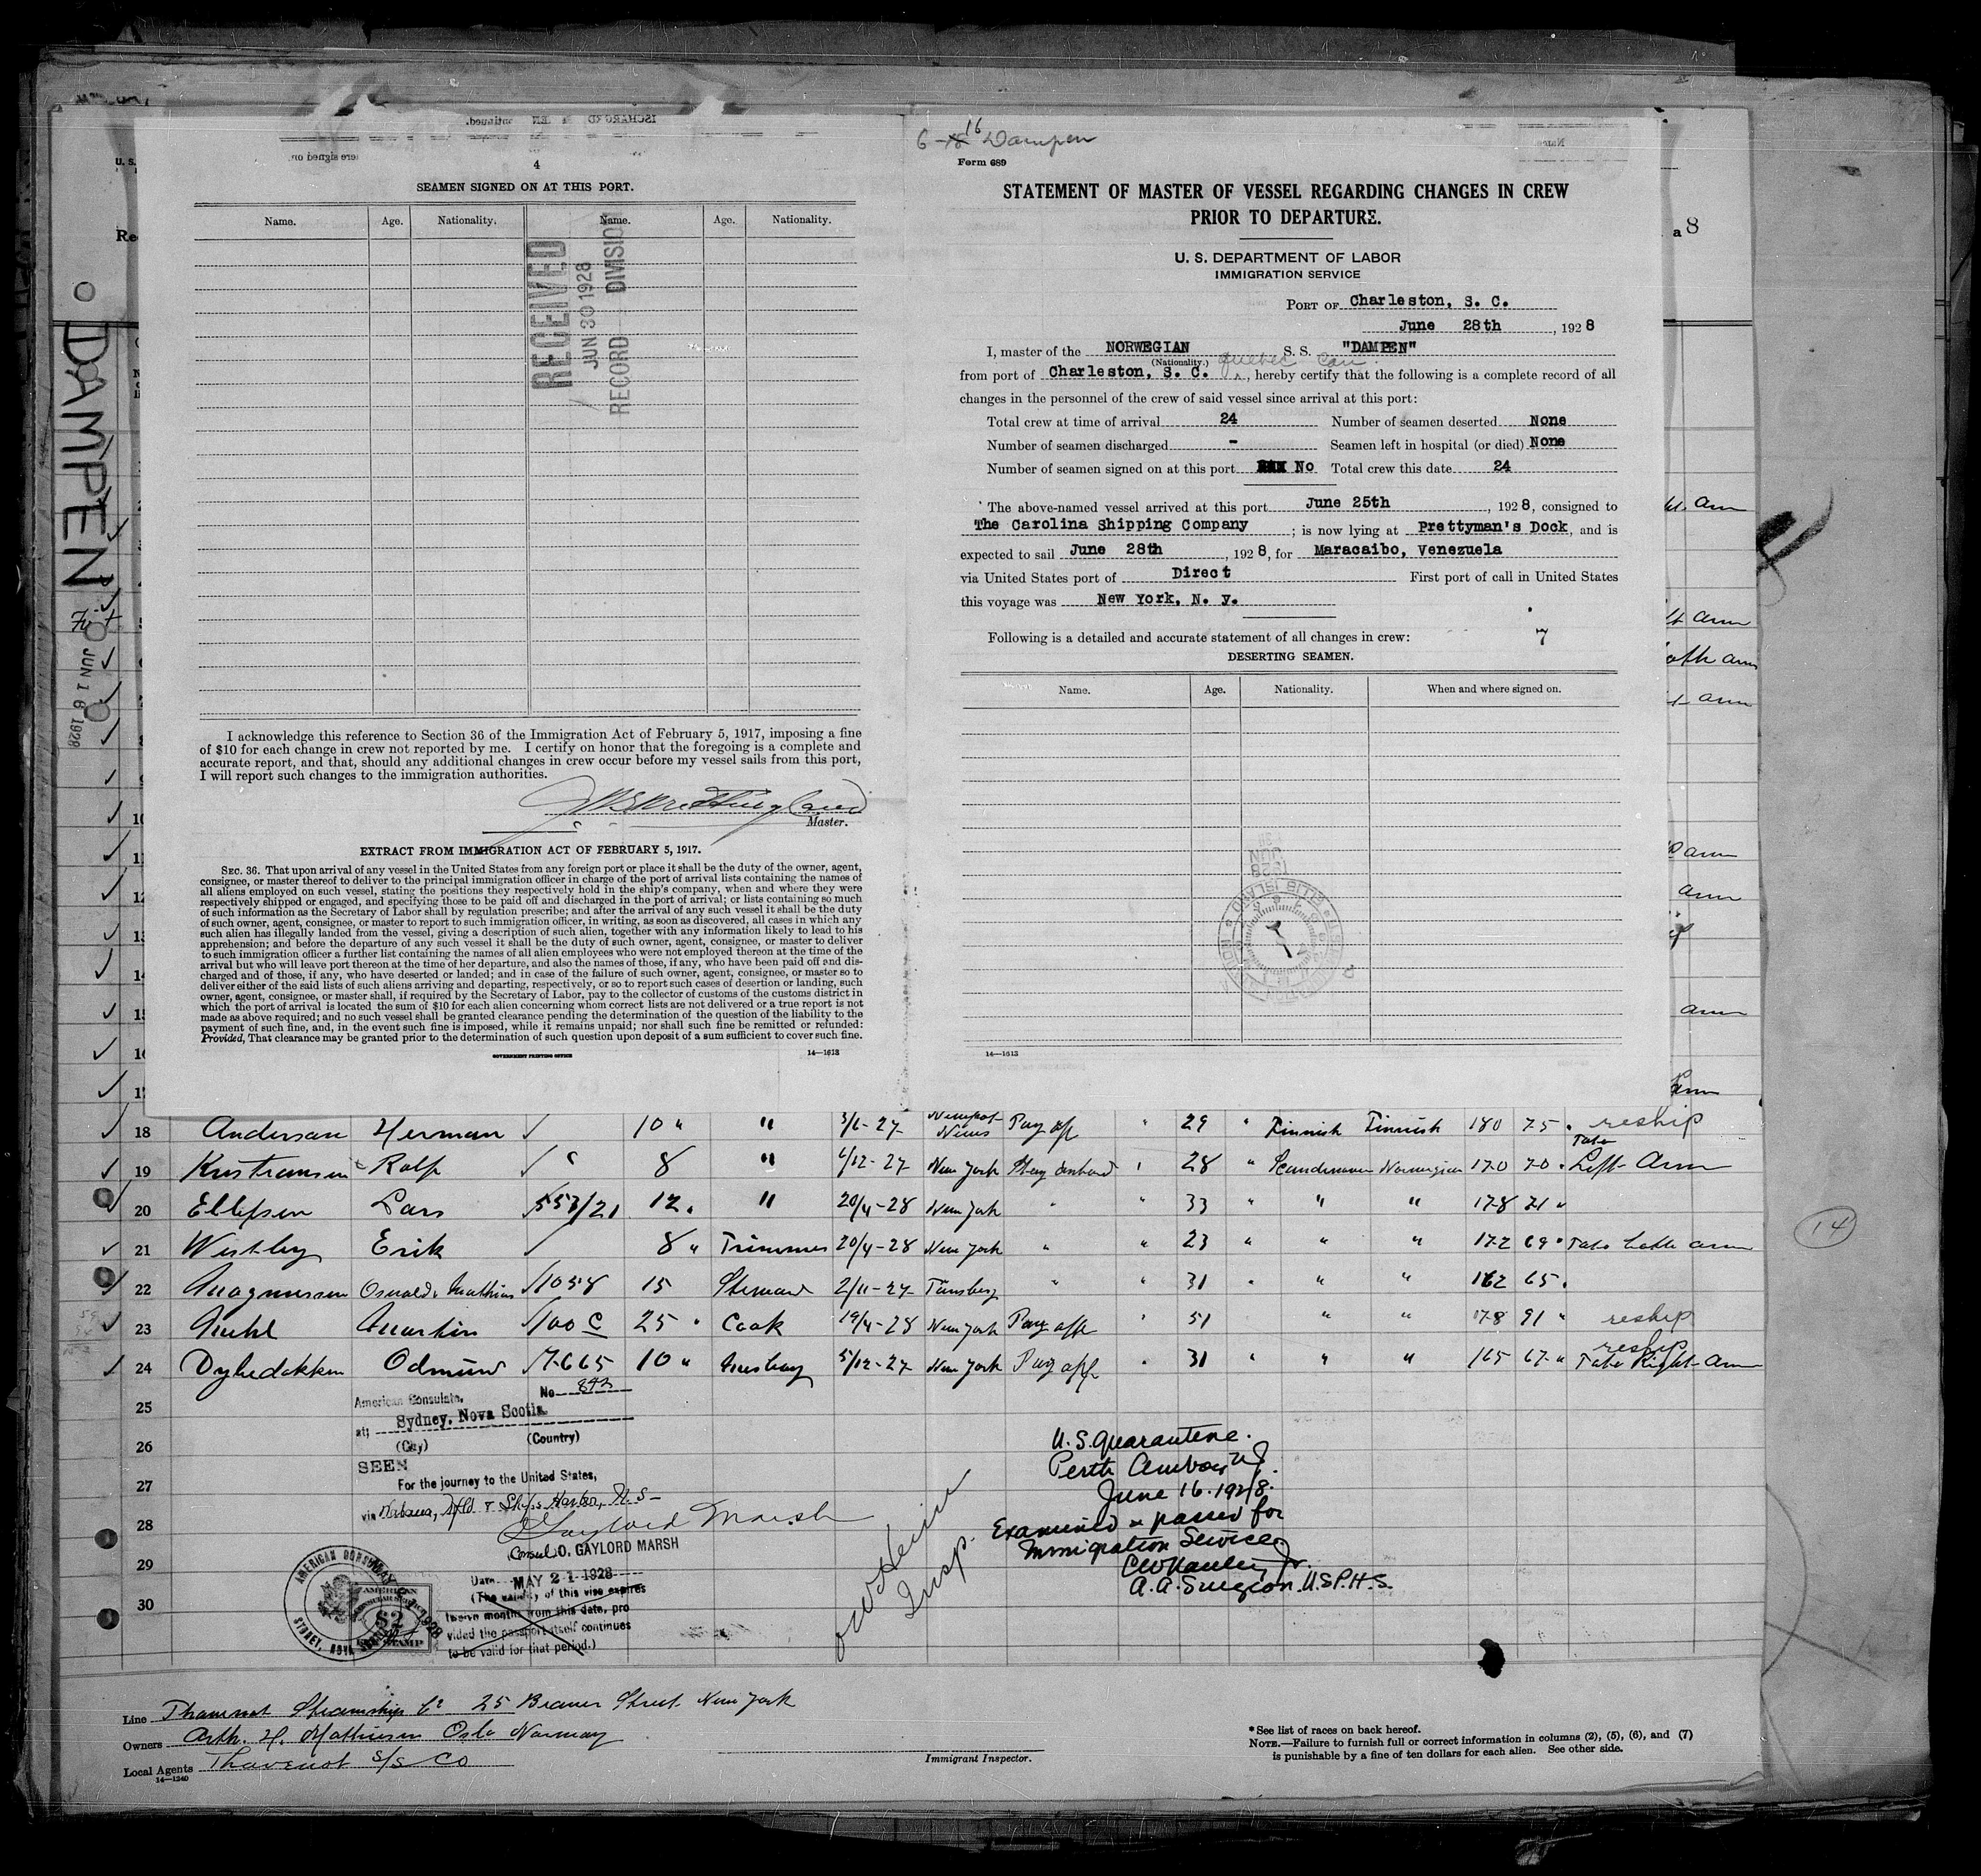 4
SEAMEN SIGNED ON AT THIS PORT.
Name. Age. Nationality. Name. Age. Nationality.
RECEIVED
JUN 30 1928
RECORD DIVISION
I acknowledge this reference to Section 36 of the Immigration Act of February 5, 1917, imposing a fine
of $10 for each change in crew not reported by me. I certify on honor that the foregoing is a complete and
accurate report, and that, should any additional changes in crew occur before my vessel sails from this port,
I will report such changes to the immigration authorities.
Master.
EXTRACT FROM IMMIGRATION ACT OF FEBRUARY 5, 1917.
SEC. 36. That upon arrival of any vessel in the United States from any foreign port or place it shall be the duty of the owner, agent,
consignee, or master thereof to deliver to the principal immigration officer in charge of the port of arrival lists containing the names of
all aliens employed on such vessel, stating the positions they respectively hold in the ship's company, when and where they were
respectively shipped or engaged, and specifying those to be paid off and discharged in the port of arrival; or lists containing so much
of such information as the Secretary of Labor shall by regulation prescribe; and after the arrival of any such vessel it shall be the duty
of such owner, agent, consignee, or master to report to such immigration officer, in writing, as soon as discovered, all cases in which any
such alien has illegally landed from the vessel, giving a description of such alien, together with any information likely to lead to his
apprehension; and before the departure of any such vessel it shall be the duty of such owner, agent, consignee, or master to deliver
to such immigration officer a further list containing the names of all alien employees who were not employed thereon at the time of the
arrival but who will leave port thereon at the time of her departure, and also the names of those, if any, who have been paid off and dis-
charged and of those, if any, who have deserted or landed; and in case of the failure of such owner, agent, consignee, or master so to
deliver either of the said lists of such aliens arriving and departing, respectively, or so to report such cases of desertion or landing, such
owner, agent, consignee, or master shall, if required by the Secretary of Labor, pay to the collector of customs of the customs district in
which the port of arrival is located the sum of $10 for each alien concerning whom correct lists are not delivered or a true report is not
made as above required; and no such vessel shall be granted clearance pending the determination of the question of the liability to the
payment of such fine, and, in the event such fine is imposed, while it remains unpaid; nor shall such fine be remitted or refunded:
Provided, That clearance may be granted prior to the determination of such question upon deposit of a sum sufficient to cover such fine.
GOVERNMENT PRINTING OFFICE 14—1613
6-16 Dampen
Form 689
STATEMENT OF MASTER OF VESSEL REGARDING CHANGES IN CREW
PRIOR TO DEPARTURE.
U. S. DEPARTMENT OF LABOR
IMMIGRATION SERVICE
PORT OF Charleston, S. C.
June 28th, 1928
I, master of the NORWEGIAN S. S. "DAMPEN"
(Nationality.) Quebec Can
from port of Charleston, S. C., hereby certify that the following is a complete record of all
changes in the personnel of the crew of said vessel since arrival at this port:
Total crew at time of arrival 24 Number of seamen deserted None
Number of seamen discharged - Seamen left in hospital (or died) None
Number of seamen signed on at this port No Total crew this date 24
The above-named vessel arrived at this port June 25th, 1928, consigned to
The Carolina Shipping Company; is now lying at Prettyman's Dock, and is
expected to sail June 28th, 1928, for Maracaibo, Venezuela
via United States port of Direct First port of call in United States
this voyage was New York, N. y.
Following is a detailed and accurate statement of all changes in crew: 7
DESERTING SEAMEN.
Name. Age. Nationality. When and where signed on.
14—1613
DAMPEN
JUN 16 1928
a 8
18 Anderson Herman 10 " " 3/1-27 Newport News Pay off " 29 " Finnish Finnish 180 75 reship
19 Ralf 8 " 6/12-27 New York Stay onboard " 28 " Scandinavian Norwegian 170 70 Tato Left Arm
20 Ellefsen Lars 553/21 12 " 20/4-28 New York " " 33 " " " 178 71 "
21 Westby Erik 8 " Trimmer 20/4-28 New York " " 23 " " " 172 69 " Tato both arm
22 Magnussen Osvald Mathias 1058 15 Steward 2/11-27 Tønsberg " " 31 " " " 162 65
23 Martin 100 C 25 " Cook 19/4-28 New York Pay off " 51 " " 178 91 " reship
24 Odmund 7665 10 " Messboy 5/12-27 New York Pay off " 31 " " " 165 67 " reship Tato Right Arm
25
26
27
28
29
30
No 843
American Consulate,
at; Sydney, Nova Scotia
(City) (Country)
SEEN
For the journey to the United States,
via Wabana, Nfld. & Ships Harbor, N.S.
Gaylord Marsh
Consul O. GAYLORD MARSH
Date MAY 21 1928
(The validity of this vise expires
twelve months from this date, pro
vided the passport itself continues
to be valid for that period.)
AMERICAN CONSULAR SERVICE $2 FEE STAMP
Insp.
U.S. Quarantine.
Perth Amboy NJ.
June 16. 1928.
Examined & passed for
Immigration Service
A. A. Surgeon. U.S.P.H.S.
14
Line Thavenot Steamship Co 25 Beaver Street New York
Owners Arth. H. Mathiesen Oslo Norway
Local Agents Thavenot S/S Co
14—1240
Immigrant Inspector.
* See list of races on back hereof.
NOTE.—Failure to furnish full or correct information in columns (2), (5), (6), and (7)
is punishable by a fine of ten dollars for each alien. See other side.